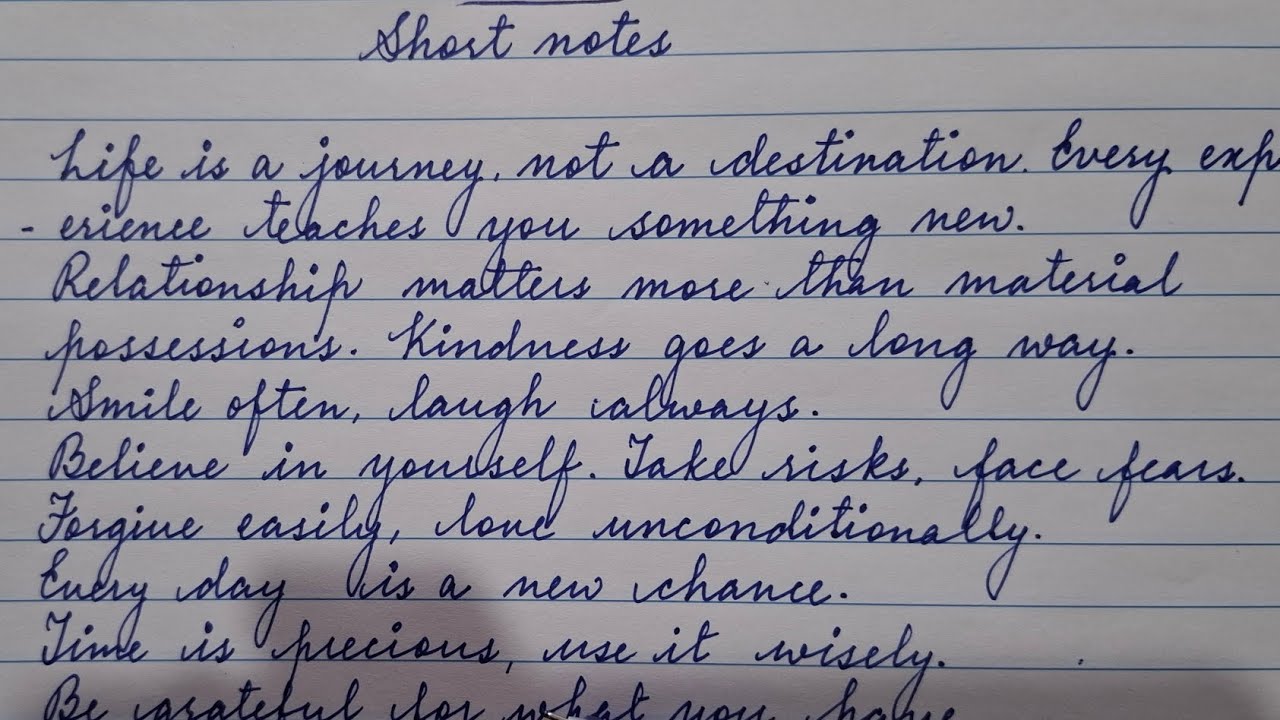 Short notes
Life is a journey, not a destination. Every exp
- erience teaches you something new.
Relationship matters more than material
possessions. Kindness goes a long way.
Smile often, laugh always.
Believe in yourself. Take risks, face fears.
Forgive easily, love unconditionally.
Every day is a new chance.
Time is precious, use it wisely.
Be grateful for what you have